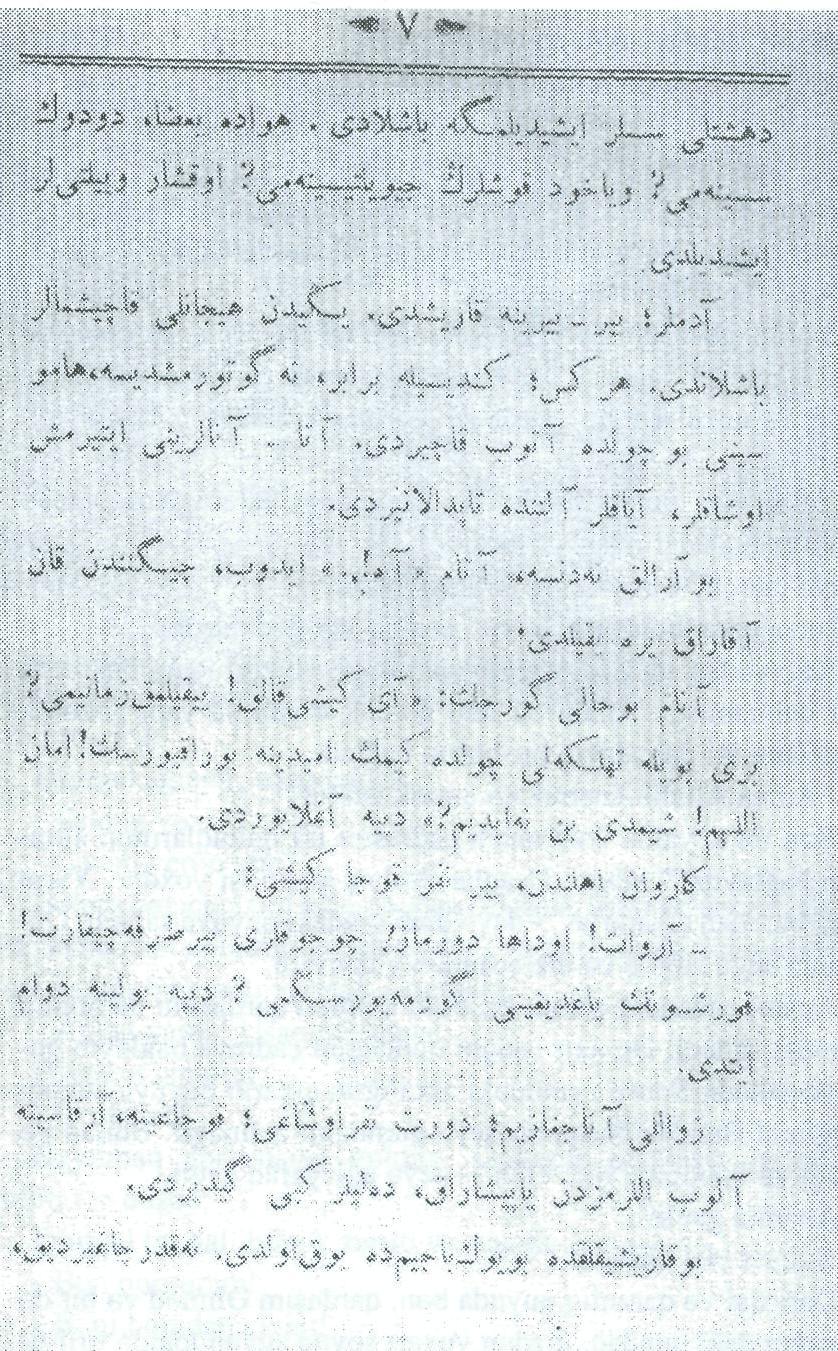 ٧
دهشتلی سسلر ایشیدیلمگه باشلادی . هواده بعضاً، دودوك
سسینه‌می؟ ویاخود قوشلرڭ جیویلتیسینه‌می؟ اوقشار وییلتی‌لر
ایشیدیلدی.
آدملر؛ بیر ـ بیرینه قاریشدی. یڭیدن هیجانلی قاچیشمالار
باشلاندی. هر کس؛ کندیسیله برابر، نه گوتورمشدیسه، هامو
سینی بو چولده آتوب قاچیردی. آتا ـ آنالرینی ایتیرمش
اوشاقلر، آیاقلر آلتنده تاپدالانیردی.
بو آرالق نه‌دنسه، آتام «آه!..» ایدوب، چیگنندن قان
آقاراق یره ییقیلدی.
آنام بو حالی گورجك: «آی کیشی قالق! ییقیلمق زمانیمی؟
بزی بویله تهلکه‌لی چولده کیمڭ امیدینه بوراقیورسڭ! امان
اللهیم! شیمدی بن نه‌ایدیم؟» دییه آغلایوردی.
کاروان اهلندن، بیر نفر قوجا کیشی:
ـ آروات! اوداها دورماز! چوجوقلری بیر طرفه چیقارت!
قورشونڭ یاغدیغینی گورمه‌یورسڭمی؟ دییه یولینه دوام
ایتدی.
زواللی آناجغازیم؛ دورت نفر اوشاغی؛ قوجاغینه، آرقاسینه
آلوب اللرمزدن یاپیشاراق، ده‌لیلر کبی گیدیردی.
بو قاریشیقلقده بویوك باجیم‌ده یوق اولدی. نه‌قدر چاغیردیق،